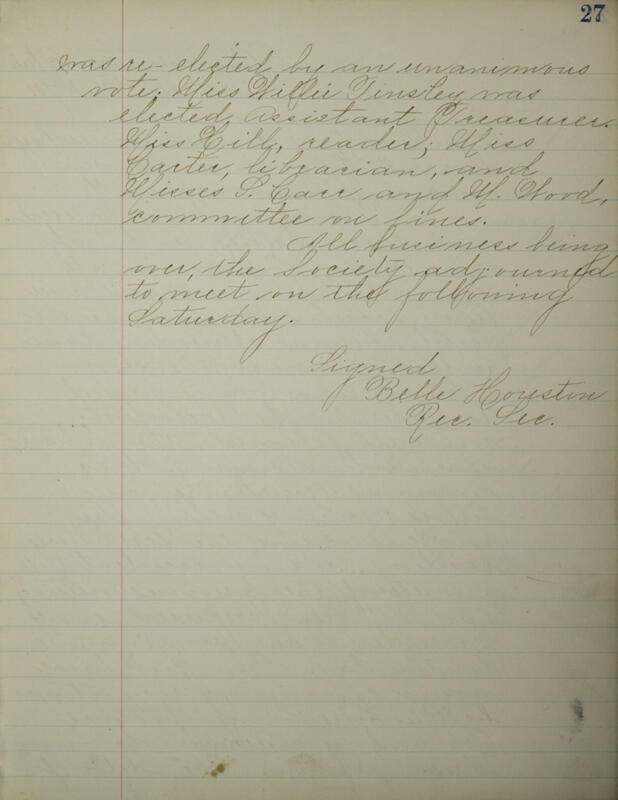 27
was re-elected by an unanimous
vote. Miss Willie Tinsley was
elected Assistant Treasurer.
Miss Hill, reader; Miss
Carter, librarian, and
Misses S. Carr and M. Wood,
committee on fines.
All business being
over, the Society adjourned
to meet on the following
Saturday.
Signed
Belle Houston
Rec. Sec.